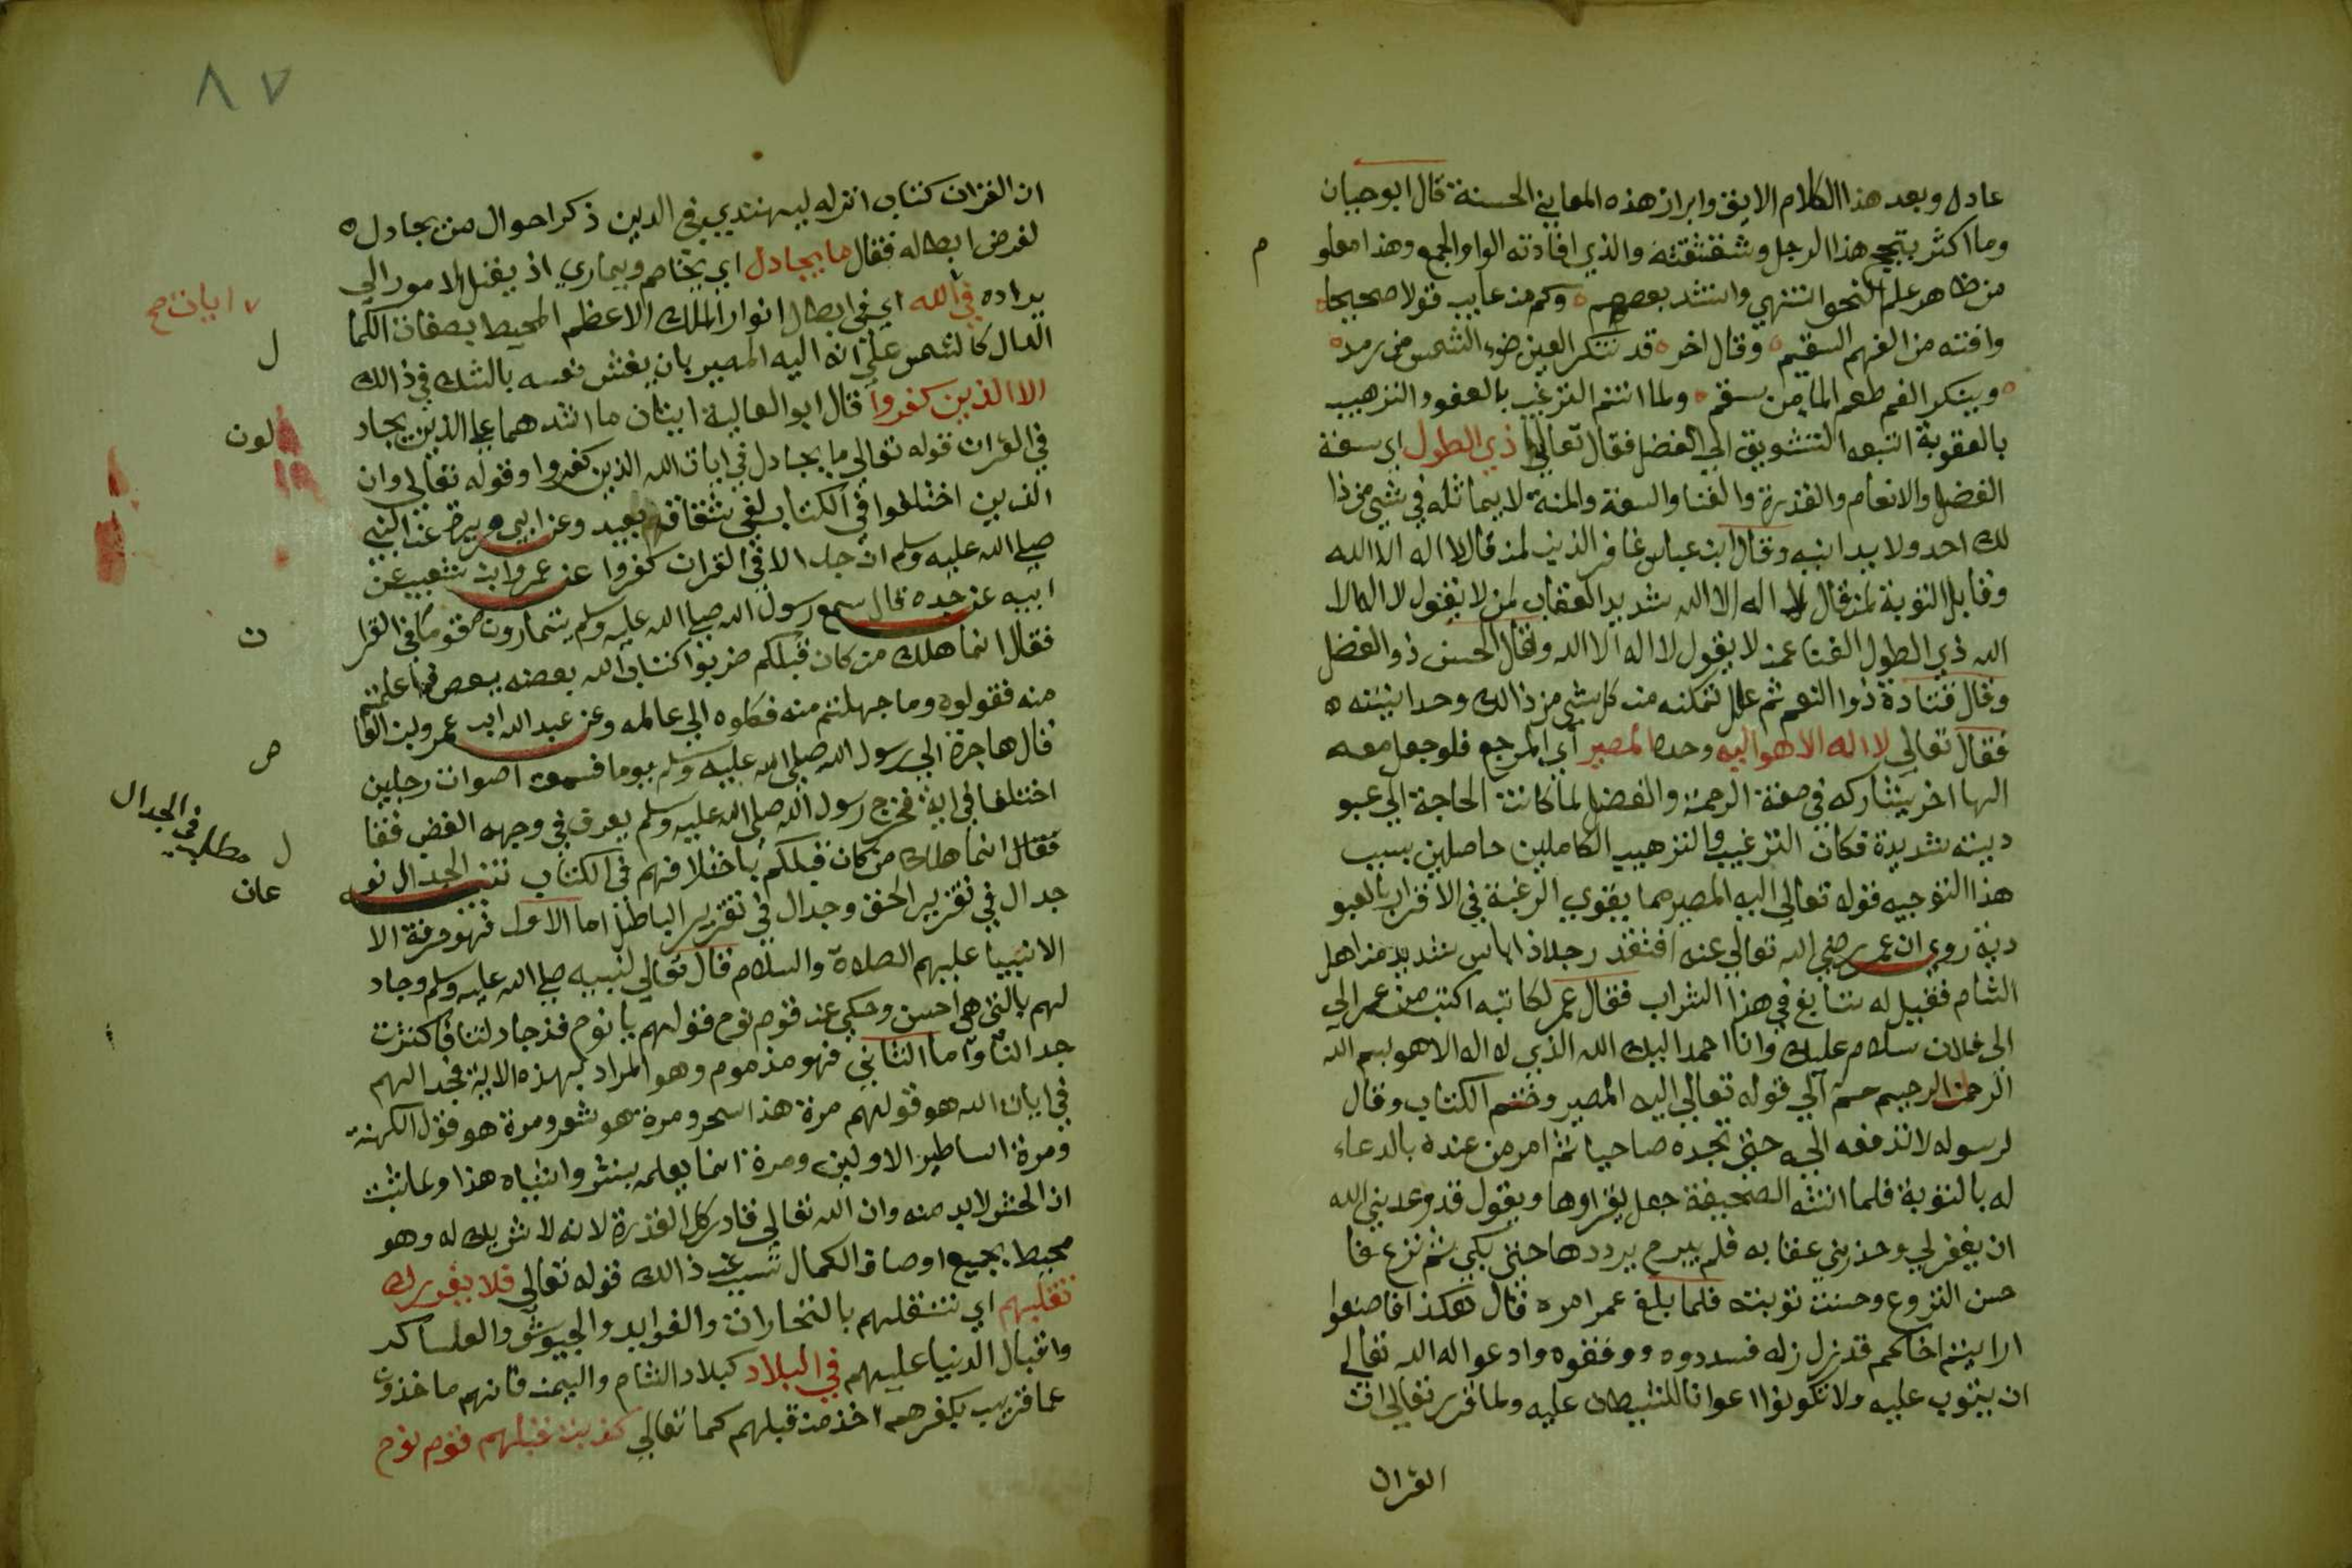 عادل وبعد هذا الكلام الانيق وابراز هذه المعاني الحسنة قال ابو حيان
وما اكثر بتجح هذا الرجل وشقشقته والذي افادته الواو الجمع وهذا معلو
م
من ظاهر علم النحو انتهي وانشد بعضهم وكم من عايب قولا صحيحا
وافته من الفهم السقيم وقال اخر قد تنكر العين ضوء الشمس من رمد
وينكر الفم طعم الما من سقم ولما اتم الترغيب بالعفو والترهيب
بالعقوبة اتبعه التشويق الي الفضل فقال تعالي ذي الطول اي سعة
الفضل والانعام والقدرة والغنا والسعة والمنة لا يماثله في شي من ذا
لك احد ولا يدانيه وقال ابن عباس غافر الذنب لمن قال لا اله الا الله
وقابل التوبة لمن قال لا اله الا الله شديد العقاب لمن لا يقول لا اله الا
الله ذي الطول الغنا عمن لا يقول لا اله الا الله وقال الحسن ذو الفضل
وقال قتادة ذوا النعم ثم علل تمكنه من كل شي من ذالك وحدانيته
فقال تعالي لا اله الا هو اليه وحده المصير أي المرجع فلو جعل معه
الها اخر يشاركه في صفة الرحمة والفضل لما كانت الحاجة الي عبو
ديته شديدة فكان الترغيب والترهيب الكاملين حاصلين بسبب
هذا التوجيه قوله تعالي اليه المصير مما يقوي الرغبة في الاقرار بالعبو
دية روي ان عمر رضي الله تعالي عنه افتقد رجلا ذا باس شديد من اهل
الشام فقيل له تتابع في هذا الشراب فقال عمر لكاتبه اكتب من عمر الي
الى فلان سلام عليك وانا احمد اليك الله الذي لا اله الا هو بسم الله
الرحمن الرحيم حم الي قوله تعالي اليه المصير وختم الكتاب وقال
لرسوله لا تدفعه اليه حتي تجده صاحيا ثم امر من عنده بالدعاء
له بالتوبة فلما اتته الصحيفة جعل يقراوها ويقول قد وعدني الله
ان يغفر لي وحذرني عقابه فلم يبرح يرددها حتي بكي ثم نزع فا
حسن النزوع وحسنت توبته فلما بلغ عمر امره قال هكذا فاصنعوا
اذا رايتم اخاكم قد زل زله فسددوه ووفقوه وادعوا له الله تعالي
ان يتوب عليه ولا تكونوا اعوانا للشيطان عليه ولما قرر تعالي ان
القران
٨٧
ان القران كتاب انزله ليهتدي به في الدين ذكر احوال من يجادل
لغرض ابطاله فقال ما يجادل اي يخاصم ويماري اذ يفتل الامور الي
يراده في الله اي في ابطال انوار الملك الاعظم المحيط بصفات الكما
ايات صح
ل
الدال كالشمس علي انه اليه المصير بان يغش نفسه بالشك في ذالك
الا الذين كفروا قال ابو العالية ايتان ما اشدهما علي الذين يجاد
لون
في القران قوله تعالي ما يجادل في ايات الله الذين كفروا وقوله تعالي وان
الذين اختلفوا في الكتاب لفي شقاق بعيد وعن ابي هريرة عن النبي
صلي الله عليه وسلم ان جدالا في القران كفروا عن عمرو ابن شعيب عن
ابيه عن جده قال سمع رسول الله صلي الله عليه وسلم قوما يتمارون في القرا
ن
فقال انما هلك من كان قبلكم ضربوا كتاب الله بعضه ببعض فما علمتم
منه فقولوه وما جهلتم منه فكلوه الي عالمه وعن عبد الله ابن عمرو بن العا
ص
قال هاجرة الي رسول الله صلي الله عليه وسلم يوما فسمعت اصوات رجلين
اختلفا في اية فخرج رسول الله صلي الله عليه وسلم يعرف في وجهه الغضب فقا
ل
فقال انما هلك من كان قبلكم باختلافهم في الكتاب تنبيه الجدال نو
عان
مطلب في الجدال
جدال في تقرير الحق وجدال في تقرير الباطل اما الاول فهو حرفة الا
الانبيا عليهم الصلاة والسلام قال تعالي لنبيه صلي الله عليه وسلم وجاد
لهم بالتي هي احسن وحكي عن قوم نوح قولهم يا نوح قد جادلتنا فاكثرت
جدالنا واما الثاني فهو مذموم وهو المراد بهذه الاية فجدالهم
في ايات الله هو قولهم مرة هذا سحر ومرة هو شعر ومرة هو قول الكهنة
ومرة اساطير الاولين ومرة انما يعلمه بشر واشباه هذا ولما ثبت
ان الحشر لابد منه وان الله تعالي قادر كل القدرة لانه لا شريك له وهو
محيط بجميع اوصاف الكمال تسبب عن ذالك قوله تعالي فلا يغررك
تقلبهم اي تنقلهم بالتجارات والفوايد والجيوش والعساكر
واقبال الدنيا عليهم في البلاد كبلاد الشام واليمن فانهم ماخذون
عما قريب بكفرهم اخذ من قبلهم كما تعالي كذبت قبلهم قوم نوح